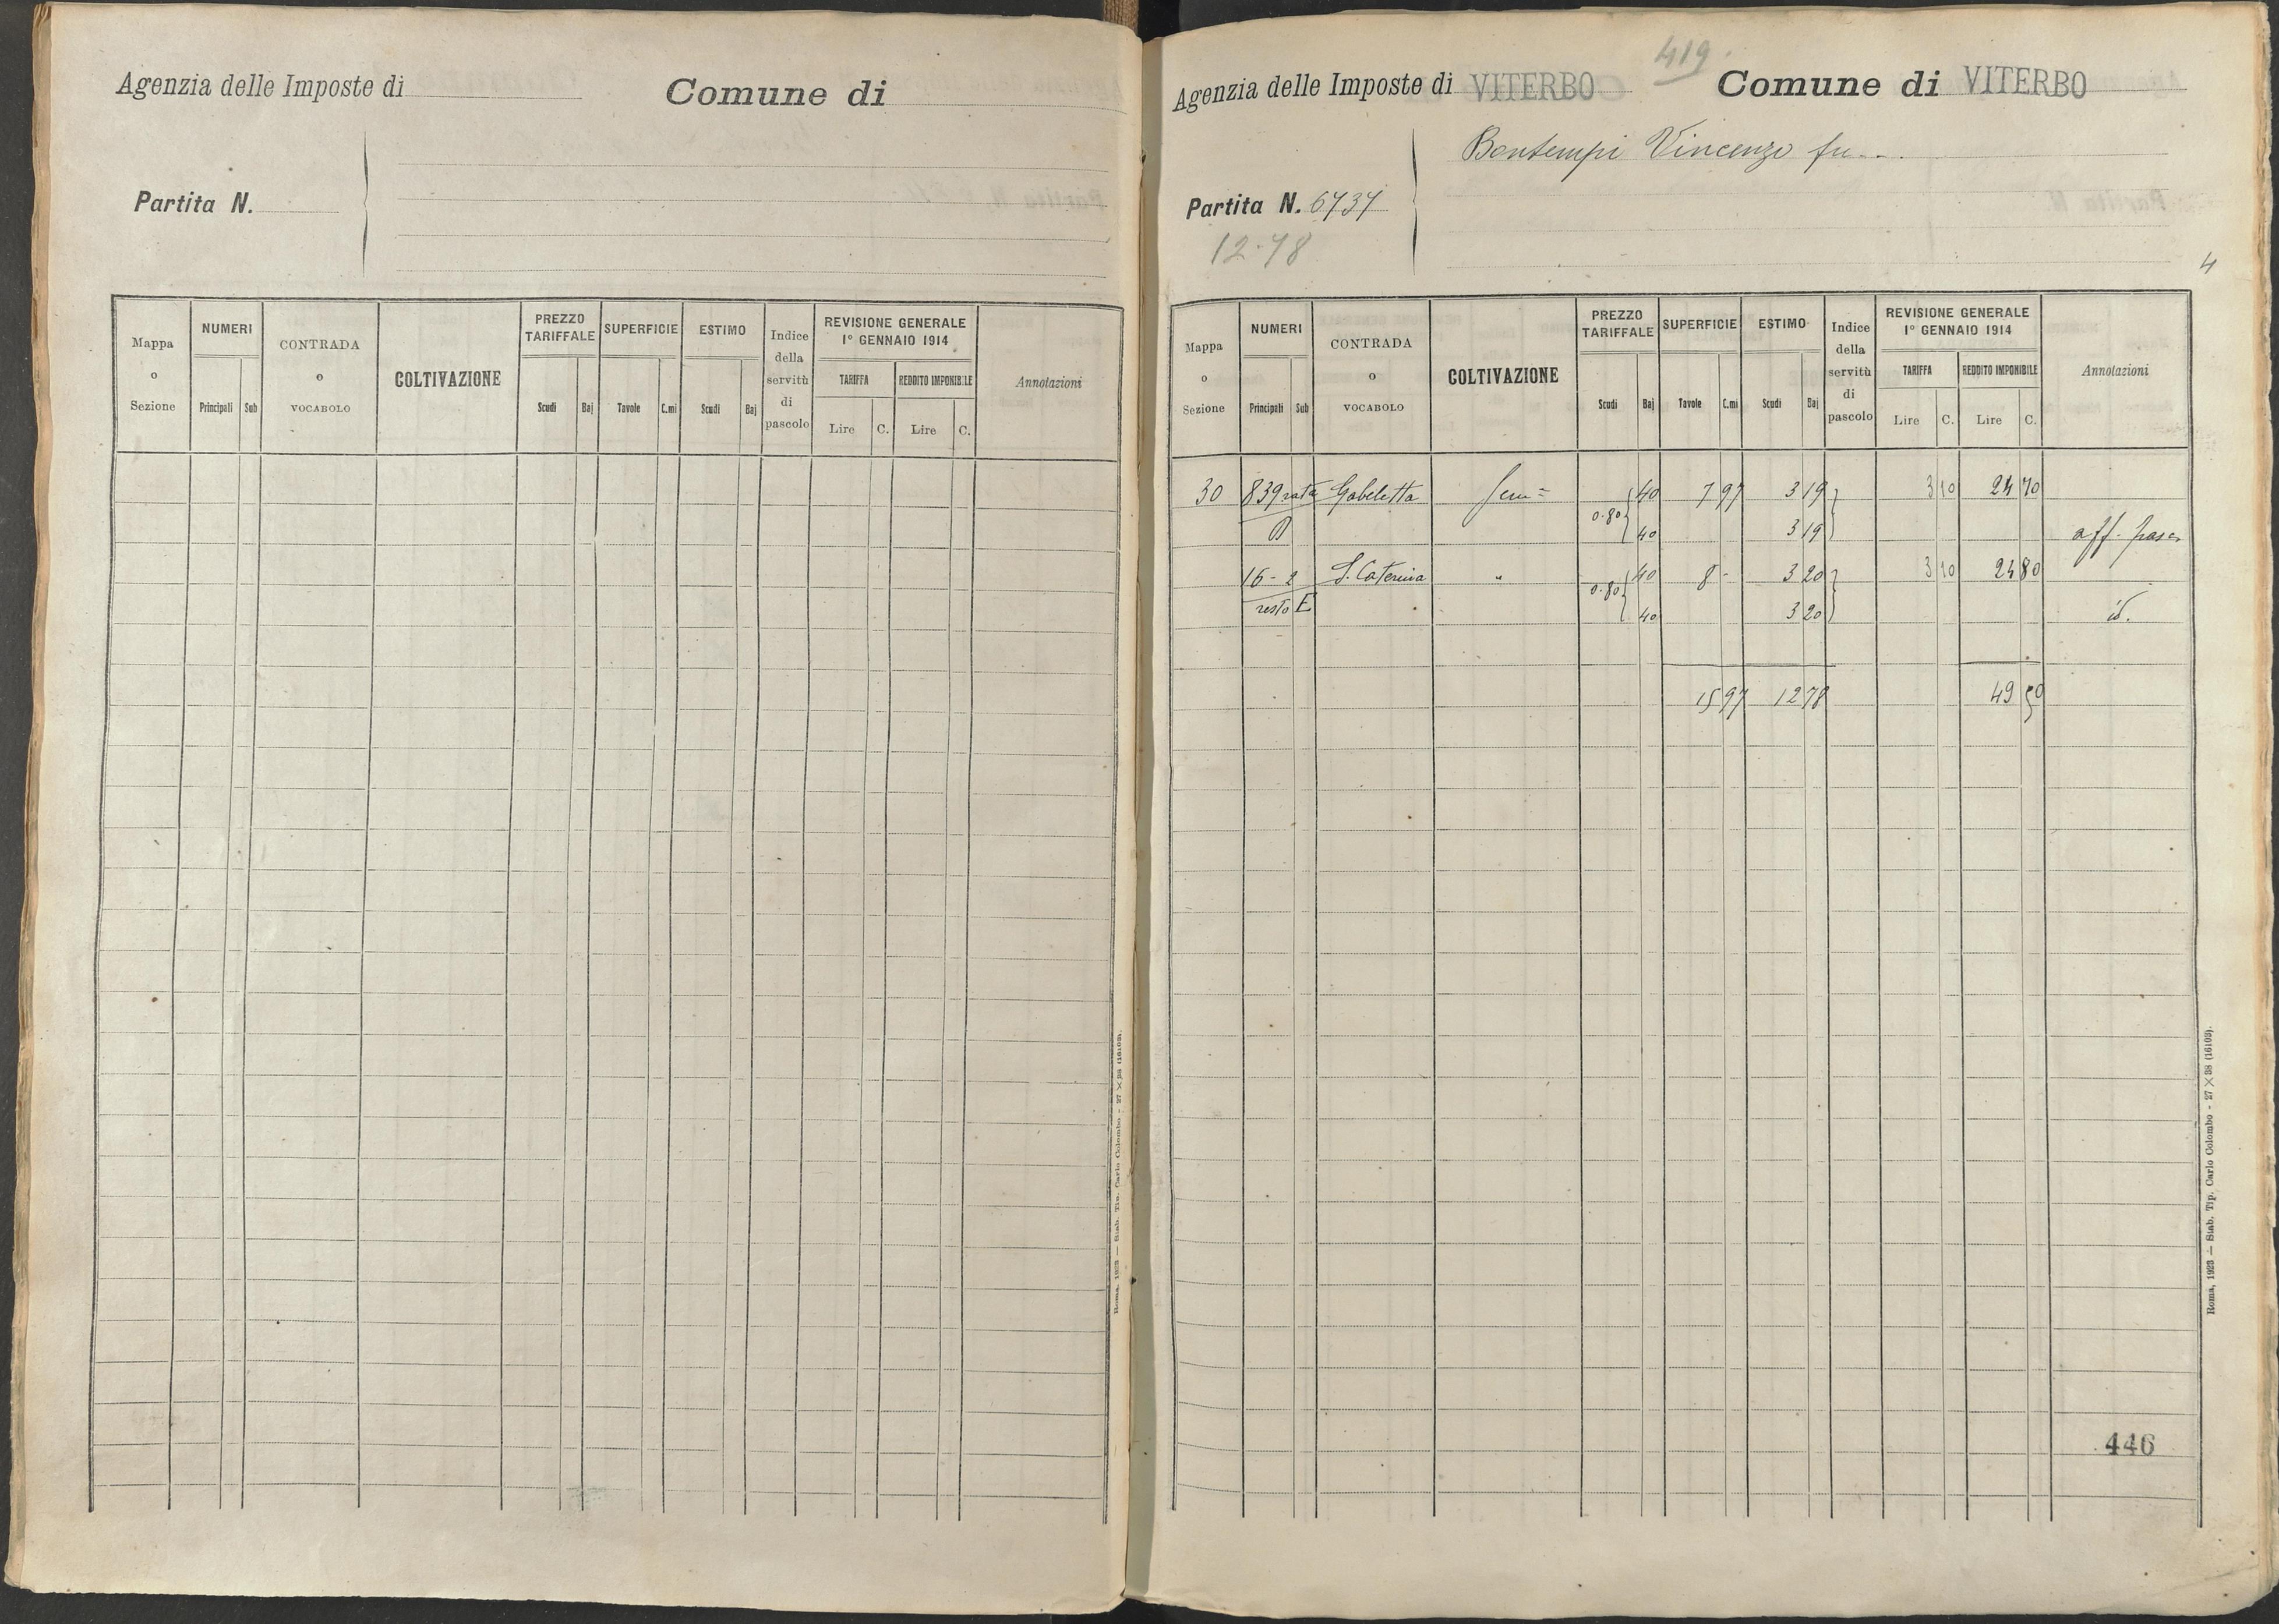 Agenzia delle Imposte di
Comune di
Partita N.
Mappa o Sezione
NUMERI
Principali
Sub
CONTRADA o VOCABOLO
COLTIVAZIONE
PREZZO TARIFFALE
Scudi
Baj
SUPERFICIE
Tavole
C.mi
ESTIMO
Scudi
Baj
Indice della servitù di pascolo
REVISIONE GENERALE
1° GENNAIO 1914
TARIFFA
Lire
C.
REDDITO IMPONIBILE
Lire
C.
Annotazioni
Roma, 1923 — Stab. Tip. Carlo Colombo - 27 × 38 (16103).
419.
Agenzia delle Imposte di VITERBO
Comune di VITERBO
Bontempi Vincenzo fu...
Partita N. 6737
12.78
4
Mappa o Sezione
NUMERI
Principali
Sub
CONTRADA o VOCABOLO
COLTIVAZIONE
PREZZO TARIFFALE
Scudi
Baj
SUPERFICIE
Tavole
C.mi
ESTIMO
Scudi
Baj
Indice della servitù di pascolo
REVISIONE GENERALE
1° GENNAIO 1914
TARIFFA
Lire
C.
REDDITO IMPONIBILE
Lire
C.
Annotazioni
30 839 rata Gabeletta Sem= 40 7 97 3 19 3 10 24 70
0.80 40 3 19 aff. pasc.
16-2 S. Caterina " 40 8 - 3 20 3 10 24 80
resto E 0.80 40 3 20 id.
15 97 12 78 49 50
446
Roma, 1923 — Stab. Tip. Carlo Colombo - 27 × 38 (16103).